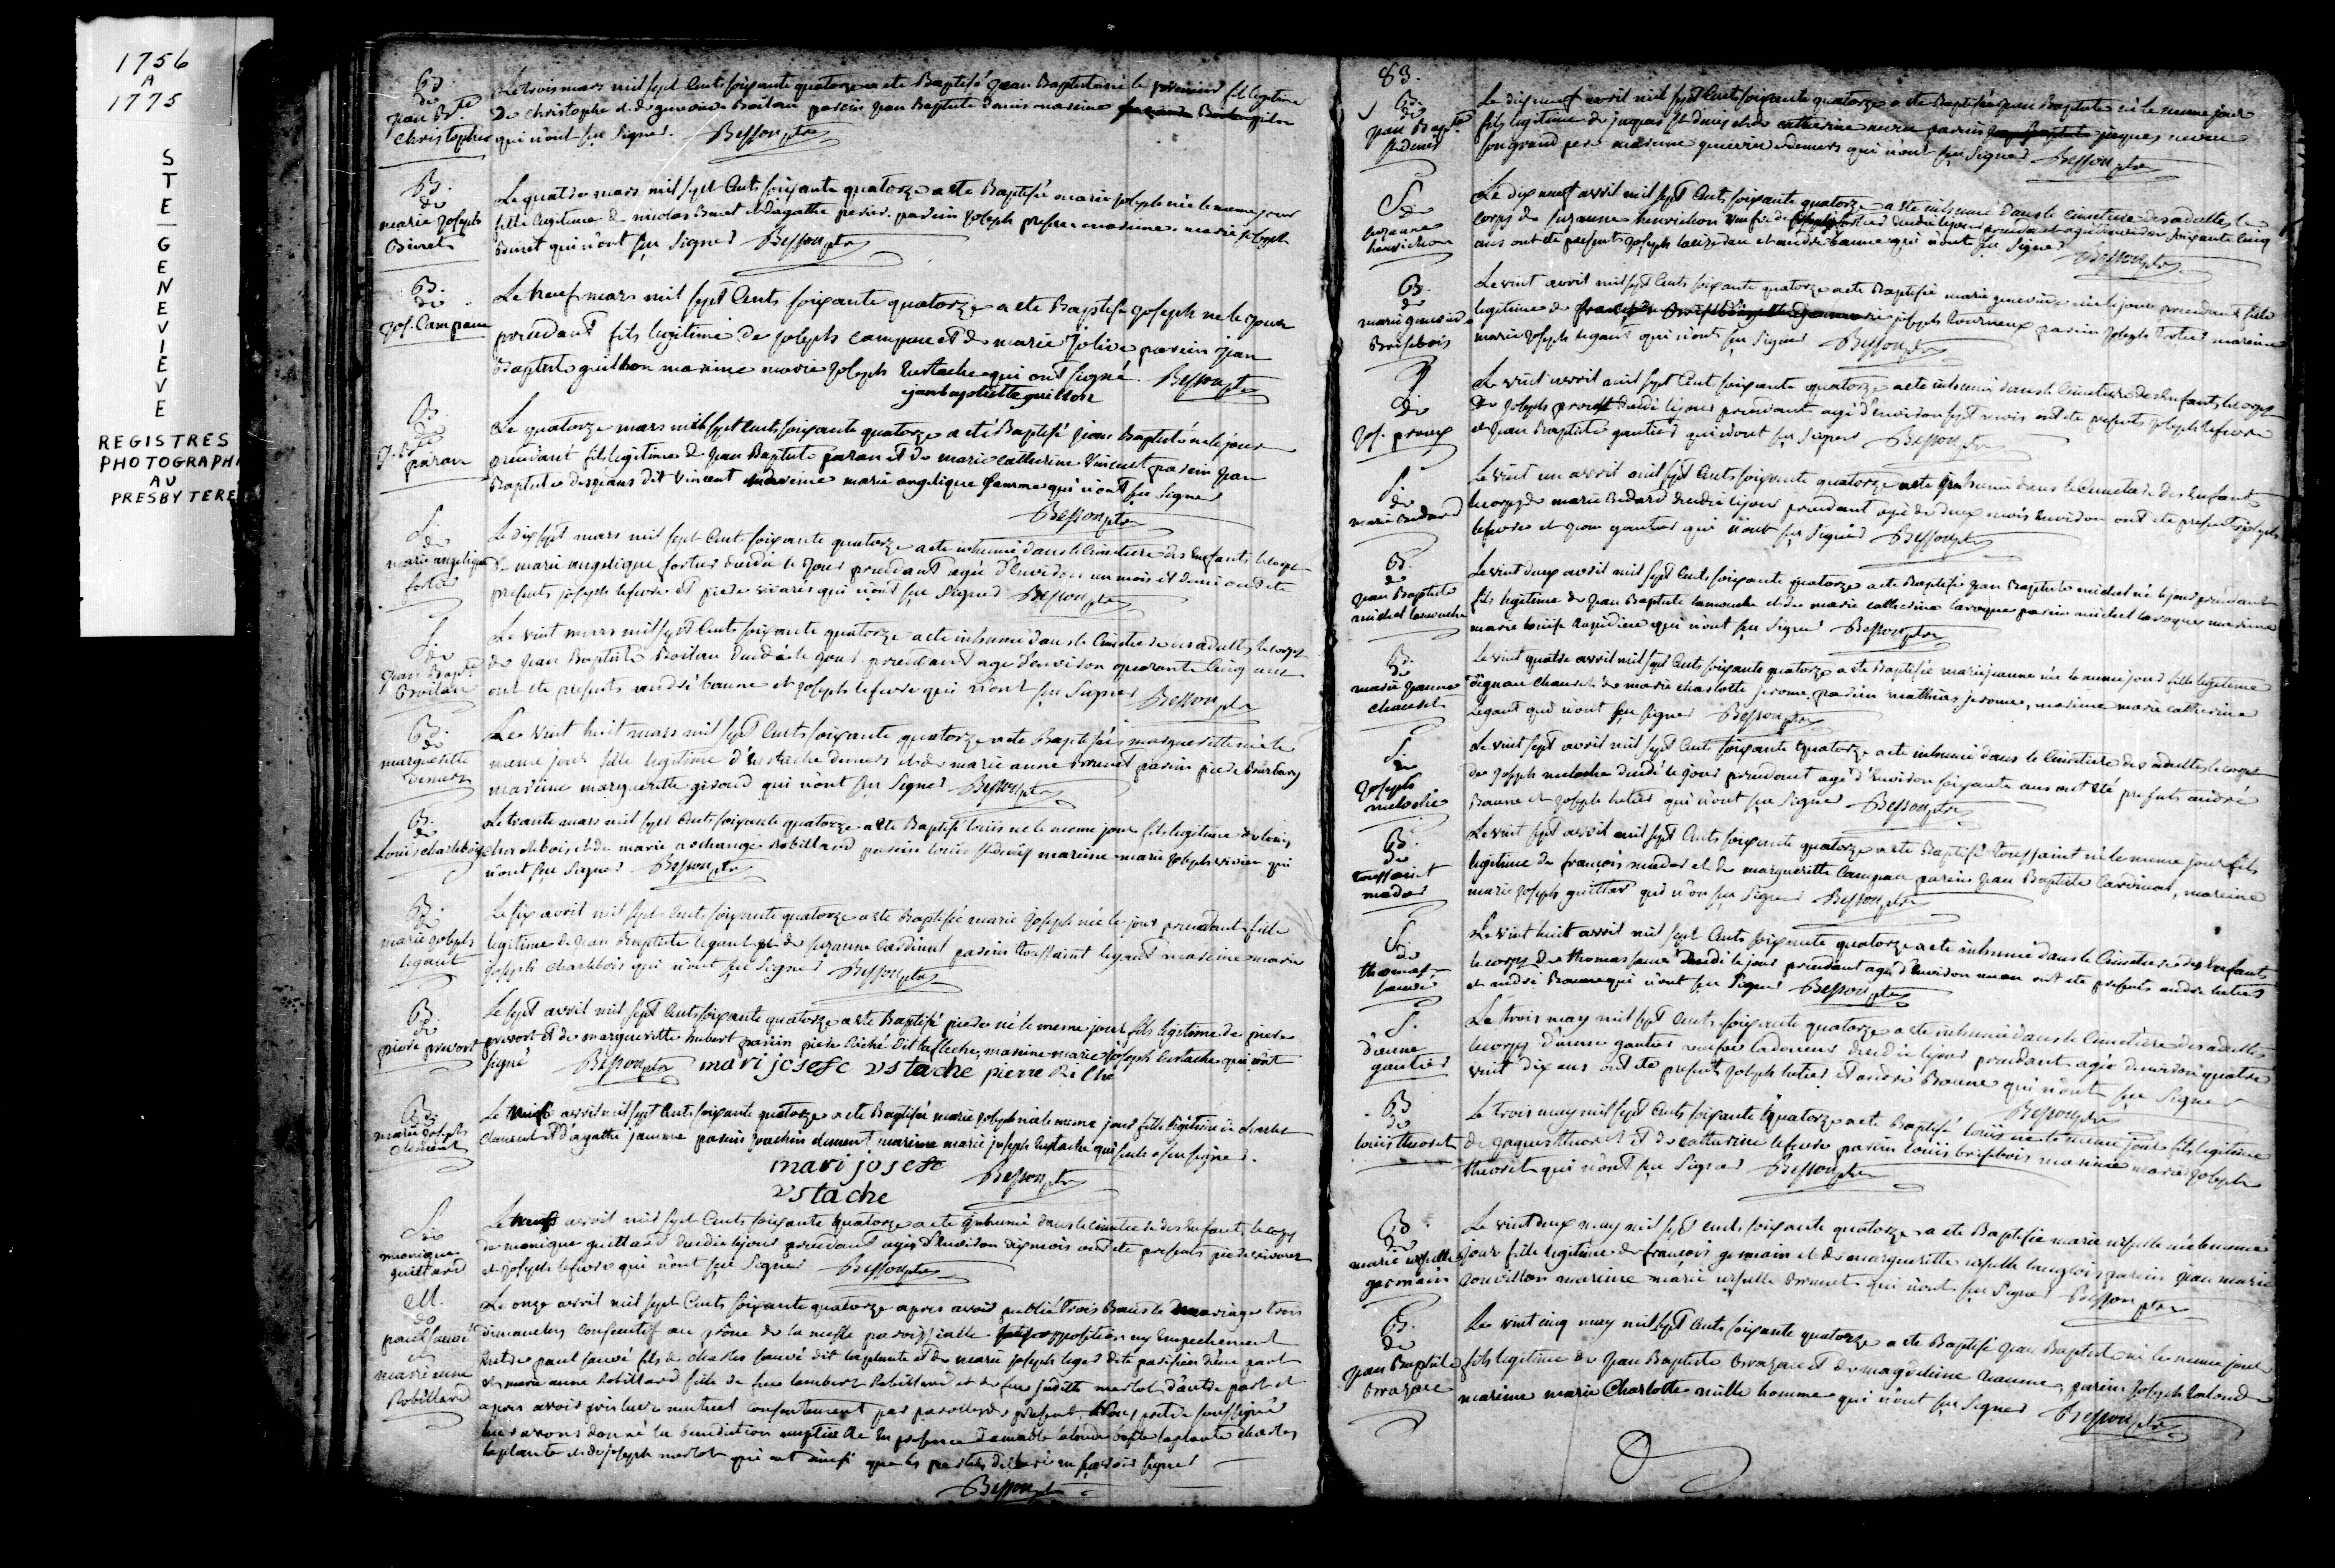 1756
A
1775
STE GENEVIEVE
REGISTRES
PHOTOGRAPHI
AU
PRESBYTERE
B.
de
Jean Bte
Christophe
Le trois mars mil sept Cents soixante quatorze a ete Baptisé Jean Baptiste né le fils legitime
De christophe et de genevieve Boileau parein Jean Baptiste mareine
qui n'ont sçu Signer. Besson ptre
B.
de
marie Joseph
Binet
Le quatre mars mil sept Cents soixante quatorze a ete Baptisée marie Joseph née le meme jour
fille legitime de nicolas Binet et d'agathe parein Joseph mareine marie Joseph
Brunet qui n'ont sçu Signer Besson ptre
B.
de
Jos. Campeau
Le neuf mars mil sept Cents soixante quatorze a ete Baptisé Joseph né le Jour
precedant fils legitime de Joseph campeau et de marie Jolive parein Jean
Baptiste guitbon mareine marie Joseph Eustache qui ont signé. Besson ptre
jean baptiette guillon
B.
de
J. Bte
paran
Le quatorze mars mil sept cents soixante quatorze a eté Baptisé Jean Baptiste né le jour
precedant fils legitime de Jean Baptiste paran et de marie catherine Vincent parein Jean
Baptiste desjeans dit Vincent mareine marie angelique Jamme qui n'ont sçu Signer
Besson ptre
S.
de
marie angelique
fortier
Le dix sept mars mil sept Cents soixante quatorze a ete inhumé dans le Cimetiere des Enfants le corps
de marie angelique fortier decedée le Jour precedant agée d'Environ un mois et demi ont ete
presents joseph lefevre et piere vivarés qui n'ont sçu Signer Besson ptre
S.
de
Jean Bapte
Boileau
Le vint mars mil sept Cents soixante quatorze a ete inhumé dans le Cimetiere des adultes le corps
de Jean Baptiste Boileau decedé le Jour precedant agé d'environ quarante Cinq ans
ont ete presents andré baune et Joseph lefevre qui n'ont sçu Signer Besson ptre
B.
de
marguerite
demers
Le vint huit mars mil sept Cents soixante quatorze a ete Baptisée marguerite née le
meme jour fille legitime d'Eustache demers et de marie anne Brunet parein piere
mareine marguerite giroud qui n'ont sçu Signer Besson ptre
B.
de
Louis charlebois
Le trante mars mil sept Cents soixante quatorze a ete Baptisé louis né le meme jour fils legitime de louis
charlebois et de marie archange Robillard parein louis mareine marie Joseph vivier qui
n'ont sçu Signer Besson ptre
B.
de
marie Joseph
legaut
Le six avril mil sept Cents soixante quatorze a ete Baptisée marie Joseph née le jour precedant fille
legitime de Jean Baptiste legaut et de suzanne Cardinal parein toussaint legaut mareine marie
Joseph charlebois qui n'ont sçu Signer Besson ptre
B.
de
piere prevost
Le sept avril mil sept Cents soixante quatorze a ete Baptisé piere né le meme jour fils legitime de piere
prevost et de marguerite hubert parein piere Riché dit lafleche, mareine marie joseph Eustache qui ont
signé Besson ptre mari josefe vstache pierre Riche
B. de
marie Joseph
clement
Le neuf avril mil sept Cents soixante quatorze a ete Baptisée marie Joseph née le meme jour fille legitime de charles
clement et d'agathe jamme parein joachin clement mareine marie joseph Eustache qui seule a sçu signer.
mari josefe
vstache
Besson ptre
S. de
monique
guillard
Le neuf avril mil sept Cents soixante quatorze a ete inhumé dans le cimetiere des Enfants le corps
de monique guillard decedée le jour precedant agée d'Environ dix mois ont ete presents piere
et Joseph lefevre qui n'ont sçu Signer Besson ptre
M.
de
paul sauvé
et
marie anne
Robillard
Le onze avril mil sept Cents soixante quatorze apres avoir publié trois Bans de mariage trois
dimanches consecutif au prône de la messe paroissialle opposition ny Empechement
Entre paul sauvé fils de charles sauvé dit laplante et de marie joseph leger dite parisien d'une part
et marie anne Robillard fille de feu lambert Robillard et de feu judith merlot d'autre part et
apres avoir pris leur mutuel consentement par parolles de present, Nous pretre soussigné
leur avons donné la benediction nuptialle En presence laplante charles
laplante et de joseph merlot qui ont ainsi que les parties declaré ne sçavoir signer
Besson ptre
83.
B.
de
Jean Bapte
St denis
Le dix neuf avril mil sept Cents soixante quatorze a ete Baptisé Jean Baptiste né le meme jour
fils legitime de jaques St denis et de catherine parein jaques
son grand pere mareine genevieve demers qui n'ont sçu Signer Besson ptre
S. de
suzanne
henrichon
Le dix neuf avril mil sept Cents soixante quatorze a ete inhumé dans le cimetiere des adultes le
corps de suzanne henrichon decedée le jour precedant agée d'environ soixante cinq
ans ont ete presents Joseph et andré baune qui n'ont sçu Signer Besson ptre
B.
de
marie genevieve
Brisebois
Le vint avril mil sept Cents soixante quatorze a ete Baptisée marie genevieve née le jour precedant fille
legitime de joseph tourneux parein joseph fortier mareine
marie Joseph legaut qui n'ont sçu Signer Besson ptre
S.
de
Jos. proux
Le vint avril mil sept Cents soixante quatorze a ete inhumé dans le Cimetiere des Enfants le corps
de Joseph decedé le jour precedant agé d'environ sept mois ont ete presents Joseph lefevre
et Jean Baptiste gautier qui n'ont sçu Signer Besson ptre
S.
de
marie Bedard
Le vint un avril mil sept Cents soixante quatorze a ete inhumé dans le Cimetiere des Enfants
le corps de marie Bedard decedée le jour precedant agé de deux mois Environ ont ete presents joseph
lefevre et Jean gautier qui n'ont sçu Signer Besson ptre
B.
de
Jean Baptiste
michel lamouche
Le vint deux avril mil sept Cents soixante quatorze a ete Baptisé Jean Baptiste michel né le jour precedant
fils legitime de Jean Baptiste lamouche et de marie catherine laroque parein michel laroque mareine
marie louise qui n'ont sçu Signer Besson ptre
B.
de
marie Jeanne
chausé
Le vint quatre avril mil sept Cents soixante quatorze a ete Baptisée marie jeanne née le meme jour fille legitime
d'ignace et de marie charlotte jerome parein mathias jerome, mareine marie catherine
legaut qui n'ont sçu Signer Besson ptre
S.
de
Joseph
meloche
Le vint sept avril mil sept Cents soixante quatorze a ete inhumé dans le Cimetiere des adultes le corps
de Joseph meloche decedé le jour precedant agé d'environ soixante ans ont eté presents andré
Baune et Joseph qui n'ont sçu Signer Besson ptre
B.
de
toussaint
madar
Le vint sept avril mil sept Cents soixante quatorze a ete Baptisé toussaint né le meme jour fils
legitime de françois madar et de marguerite Campeau parein Jean Baptiste Cardinal, mareine
marie Joseph qui n'on sçu Signer Besson ptre
S.
de
thomas
sauvé
Le vint huit avril mil sept Cents soixante quatorze a ete inhumé dans le Cimetiere des Enfants
le corps de thomas sauvé decedé le jour precedant agé d'environ un an ont ete presents andré
et andré Baune qui n'ont sçu Signer Besson ptre
S.
d'anne
gautier
Le trois may mil sept Cents soixante quatorze a ete inhumé dans le Cimetiere des adultes
le corps d'anne gautier veufve ladouceur decedée le jour precedant agée d'environ quatre
vint dix ans ont ete presents Joseph et andré Baune qui n'ont sçu Signer
Besson ptre
B
de
louis theoret
Le trois may mil sept Cents soixante quatorze a ete Baptisé louis né le meme jour fils legitime
de Jaques theoret et de catherine lefevre parein louis brisebois mareine marie Joseph
theoret qui n'ont sçu Signer Besson ptre
B.
de
marie ursulle
germain
Le vint deux may mil sept Cents soixante quatorze a ete Baptisée marie ursulle née le meme
jour fille legitime de francois germain et de marguerite ursulle langlois parein Jean marie
mareine marie ursulle brunet qui n'ont sçu Signer Besson ptre
B.
de
Jean Baptiste
Brazeau
Le vint cinq may mil sept Cents soixante quatorze a ete Baptisé Jean Baptiste né le meme jour
fils legitime de Jean Baptiste Brazeau et de magdeleine parein Joseph lalonde
mareine marie Charlotte mille homme qui n'ont sçu Signer Besson ptre